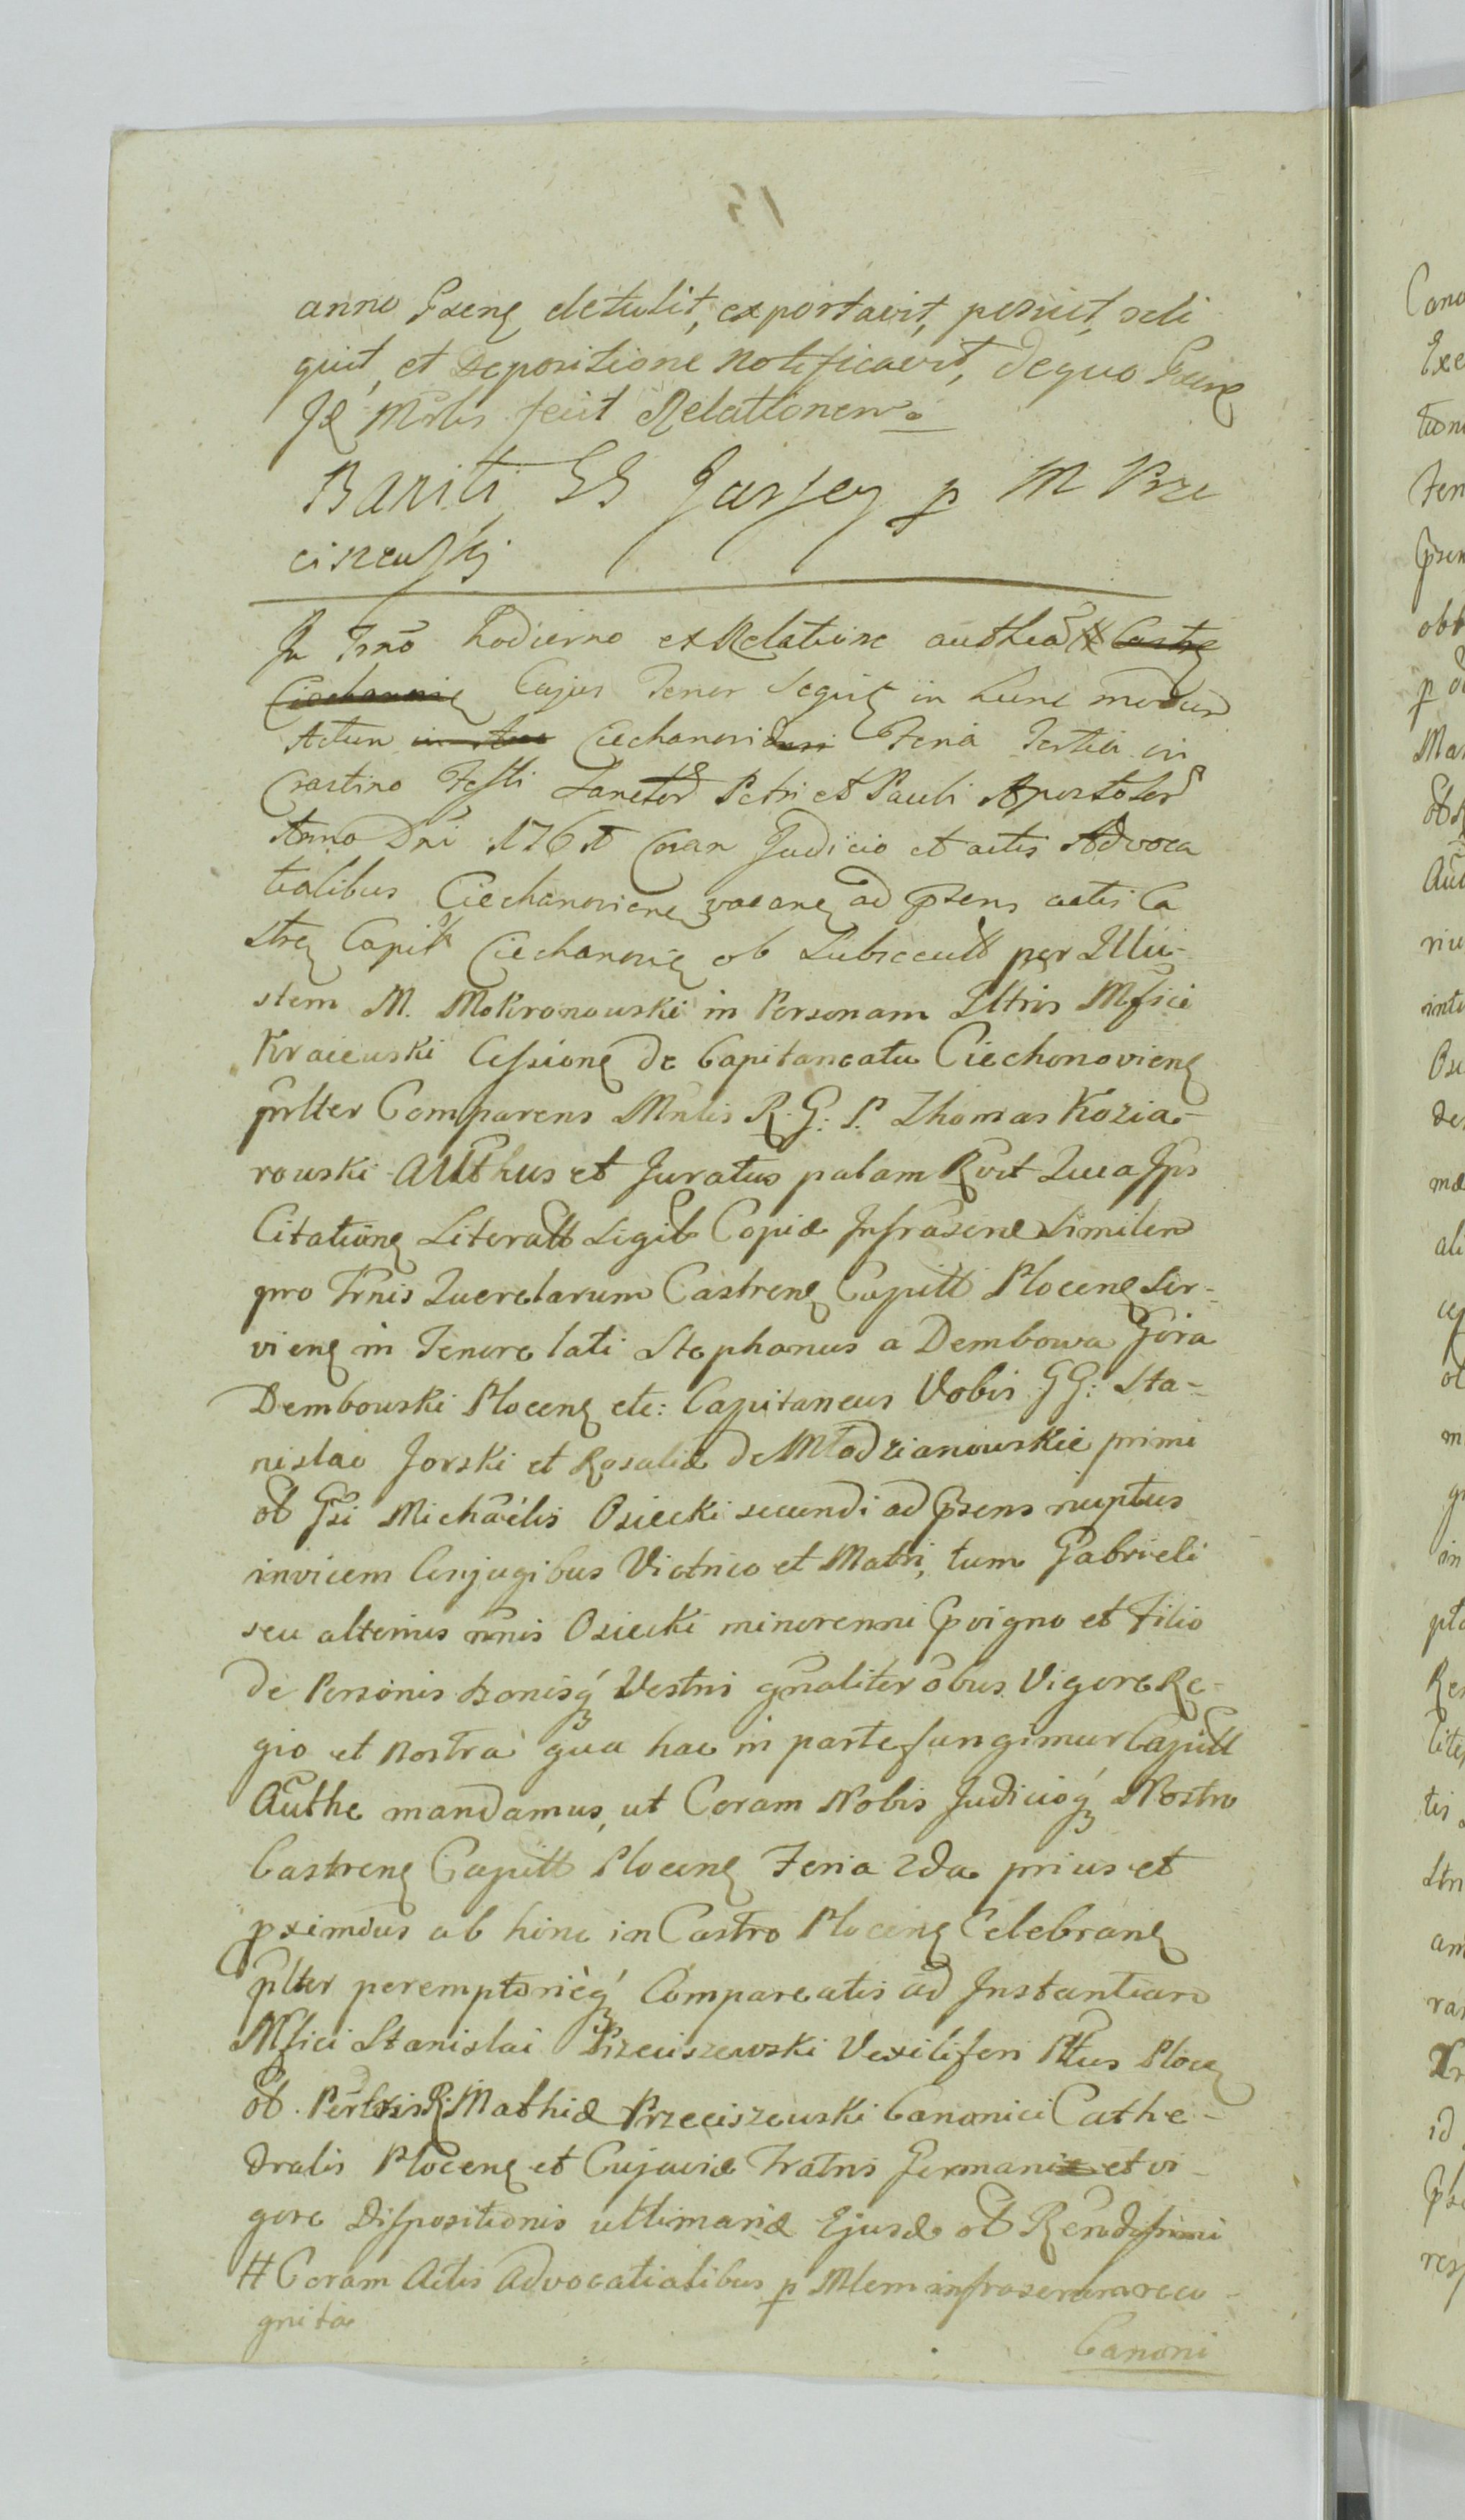 anno Praeng detulit, exportavit, posuit, reli
quit, et Depositione Notificavit, de quo Praeng
Id Mrlis fecit Relationem
Bariti GG Jarssey p M Prze
ciszewskj
In Trno hodierno ex Relatione authea # Castrg
Ciechanovieg Cujus Tenor seqītg in hunc modum
Actum in Ciechanovi Feria Tertia in
Crastino Festi Sanctor Petri et Pauli Apostolor
Anno Dni 1761 Coram Judicio et actis Advoca
tialibus Ciechanovieng vacang ad Prens actis Ca
streg Capit Ciechanovieg ob Subsecutt per Illu-
strem M. Mokronowski in Personam Illtris Mfici
Kraiewski Cessiong de Capitaneatu Ciechonovieng
prlter Comparens Mnlis R. G: P. Thomas Kozia-
rowski Authus et Juratus palam Rvit Quia Ips
Citationg Literatt Sigilt Copiæ Infrascræ Similem
pro Trnis Querelarum Castreng Capitt Ploceng Ser-
vieng in Tenore lati Stephanus a Dembowa Góra
Dembowski Ploceng etc: Capitaneus Vobis GG: Sta-
nislao Jorski et Rosaliæ de Młodzianowskie primi
ot Gsi Michaëlis Osiecki secundi ad Prens nuptus
invicem Conjugibus Victrico et Matri, tum Gabrieli
seu alterius nnis Osiecki minorenni Pvigno et Filio
de Personis bonisq Vestris gnaliter obus Vigore Re-
gio et Nostra qua hac in parte fungimur Capitt
Authe mandamus, ut Coram Nobis Judicioq Nostro
Castreng Capitt Ploceng Feria 2da prius et
pximius ab hinc in Castro Ploceng Celebrang
prlter peremptorièq Compareatis ad Instantiam
Mfici Stanislai Przeciszewski Vexiliferi Pltus Plocg
ot. Perlris R. Mathiæ Przeciszewski Canonici Cathe-
dralis Ploceng et Cujaviæ Fratris Germani et vi-
gore Dispositionis ultimariæ Ejusd ot Rendissimi
# Coram Actis Advocatialibus p Mlem infrascrum reco-
gnita
Canoni